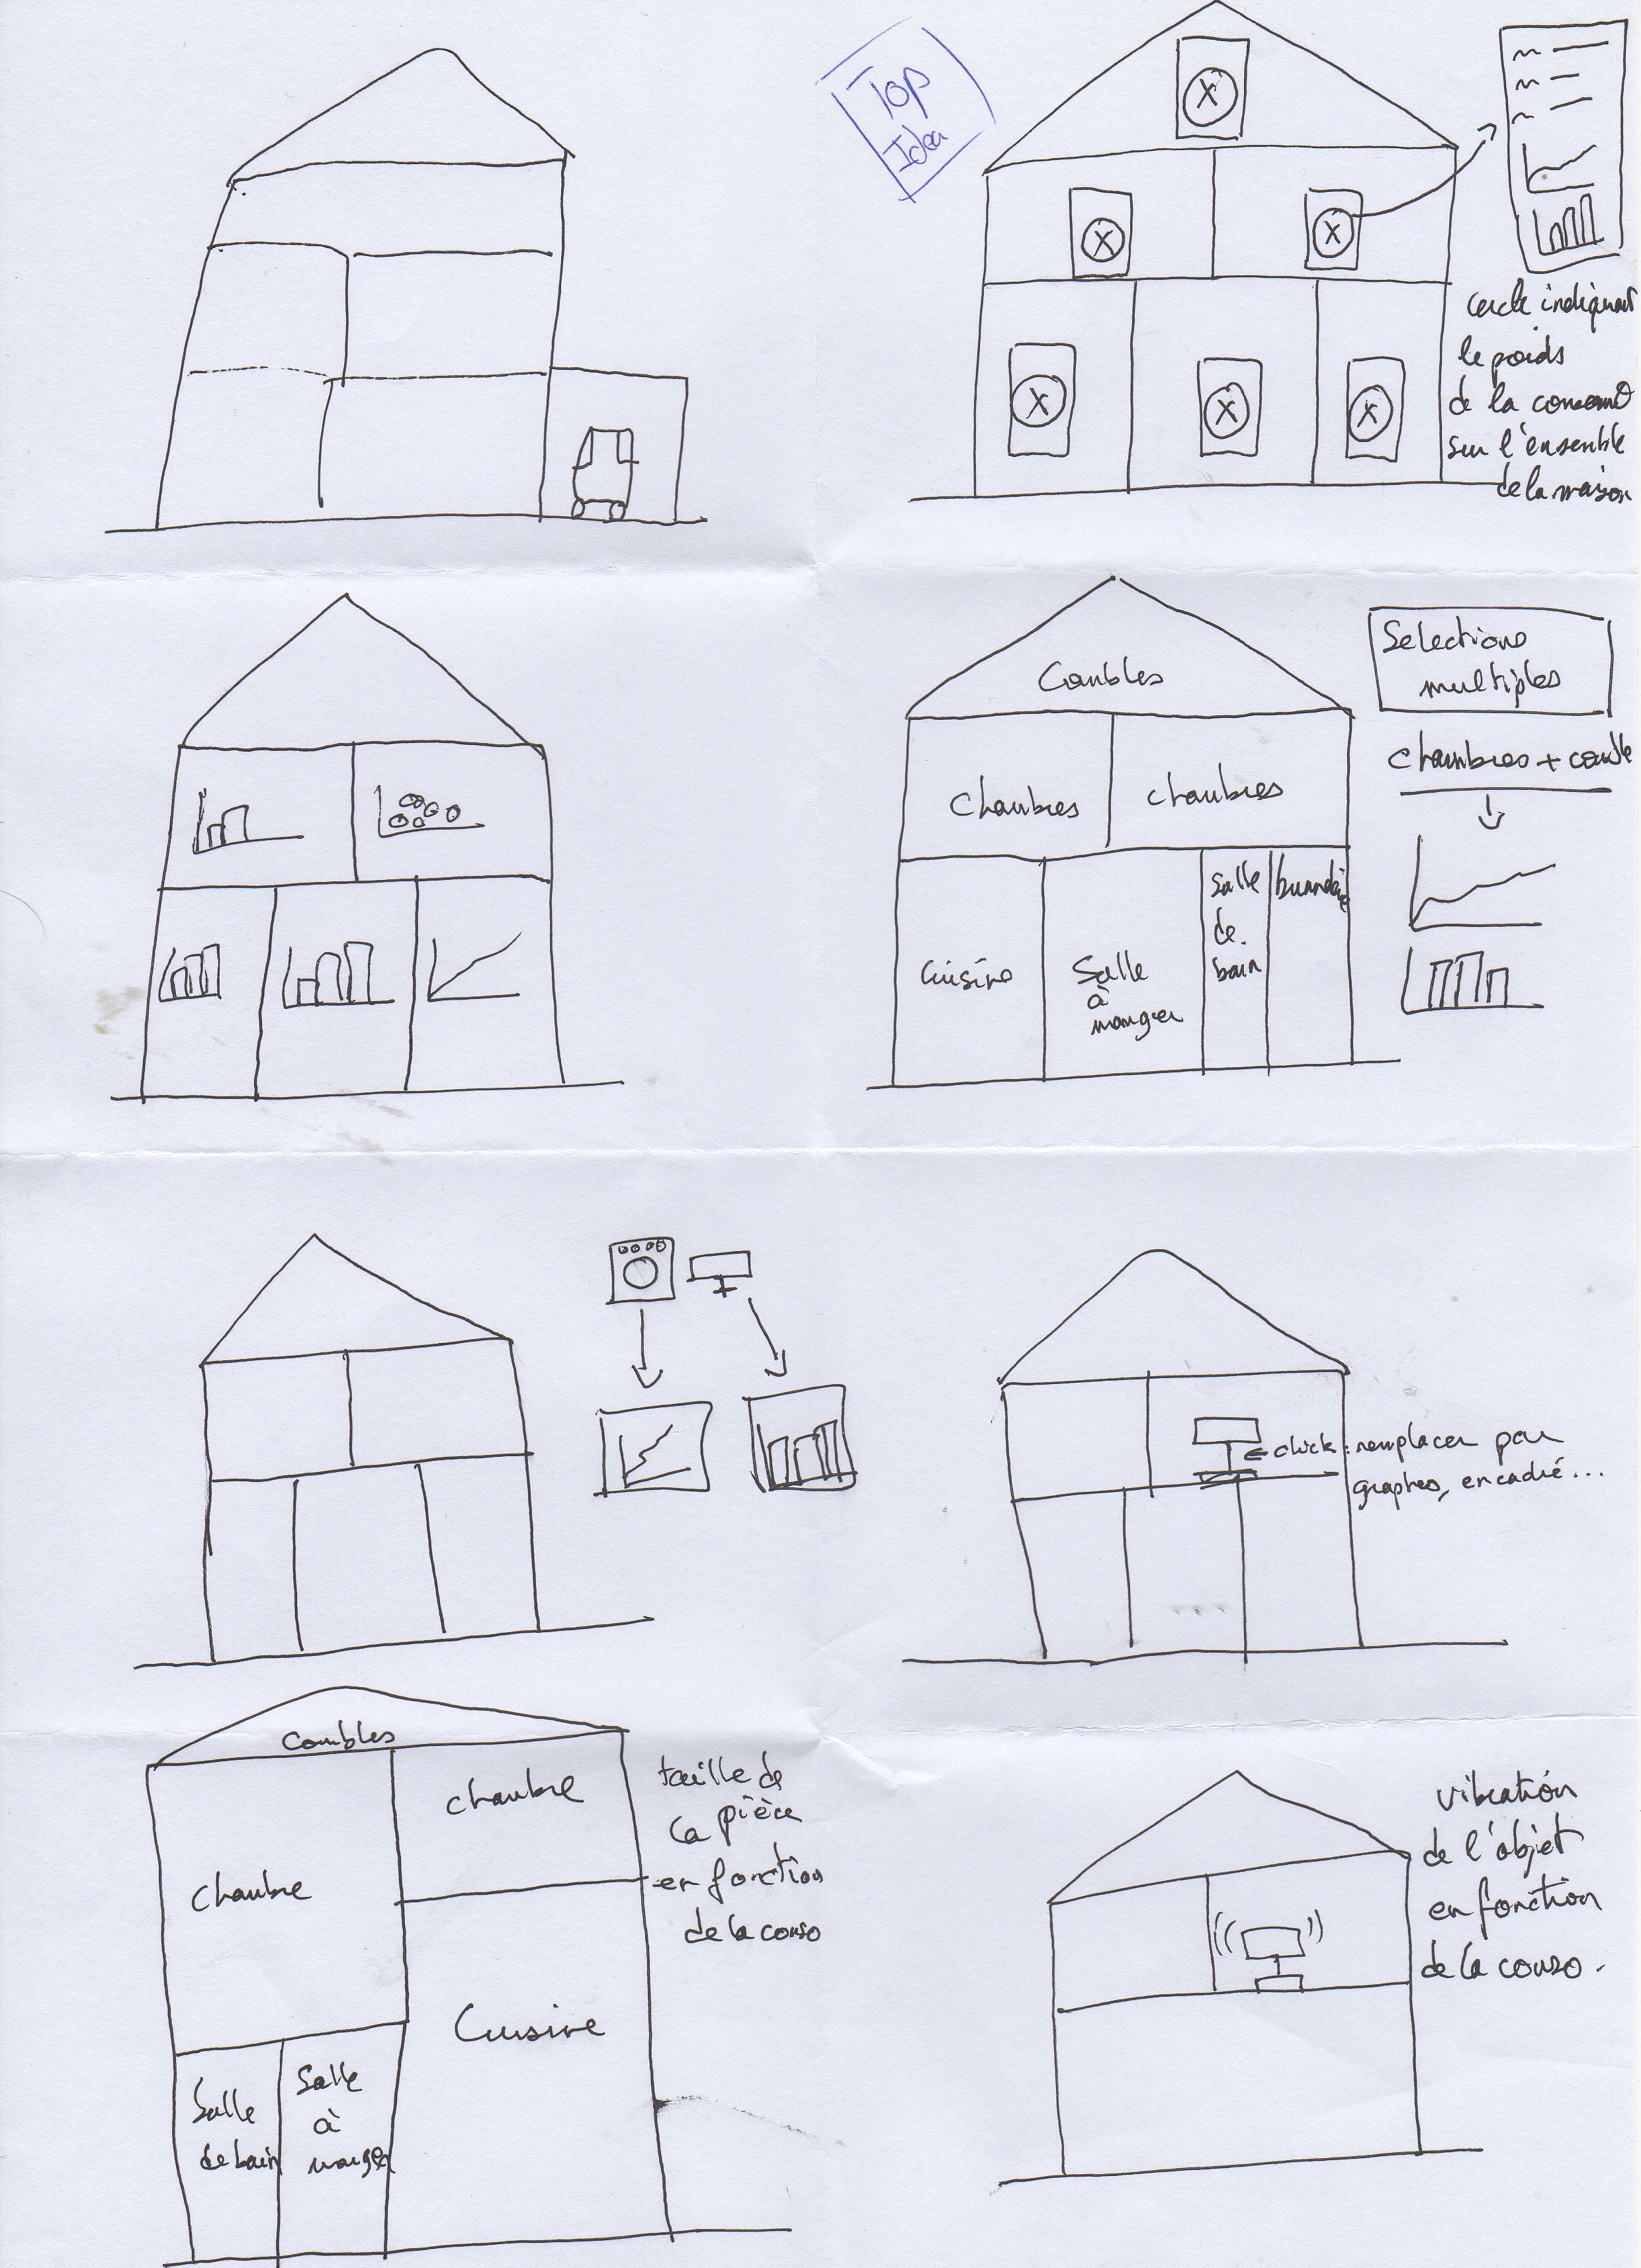 Top
Idea
X
X
X
X
X
X
cercle indiquant
le poids
de la consommo
sur l'ensemble
de la maison
Combles
Chambres
chambres
cuisine
Salle
à
manger
salle
de
bain
Selections
multiples
chambres + comble
click : remplacer par
graphes, encadré...
Combles
chambre
chambre
Cuisine
Salle
de bain
Salle
à
manger
taille de
la pièce
en fonction
de la conso
vibration
de l'objet
en fonction
de la conso.